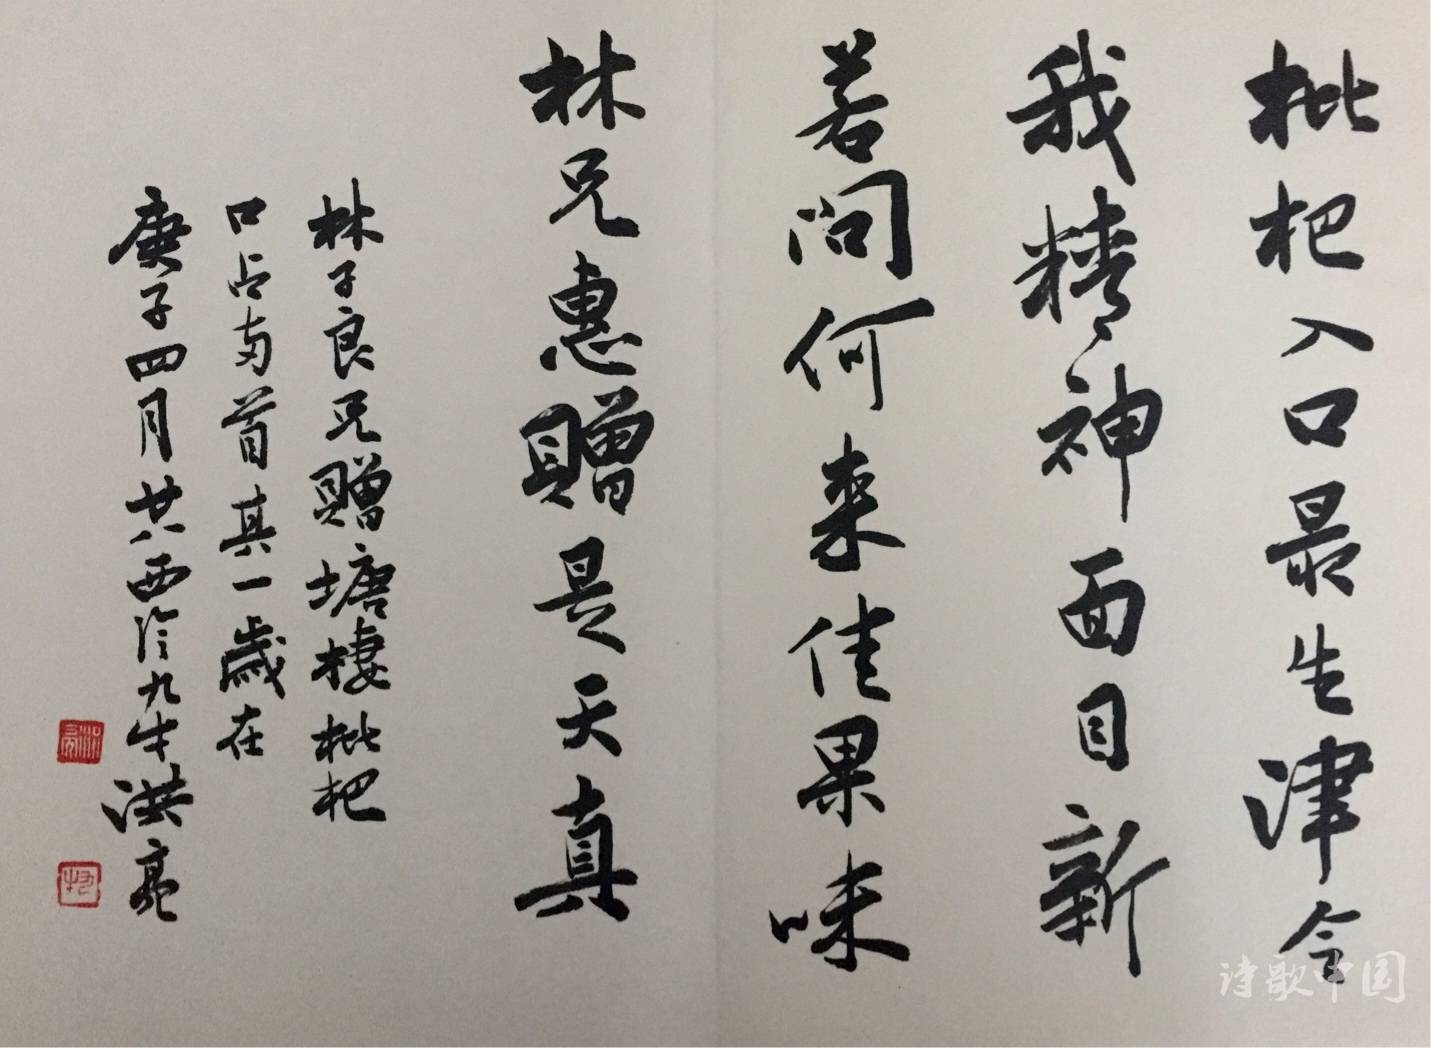 枇杷入口最生津令
我精神面目新
若问何来佳果味
林兄惠赠是天真
林子良兄赠塘栖枇杷
口占两首其一岁在
庚子四月廿八西泠九牛洪亮
诗歌中国